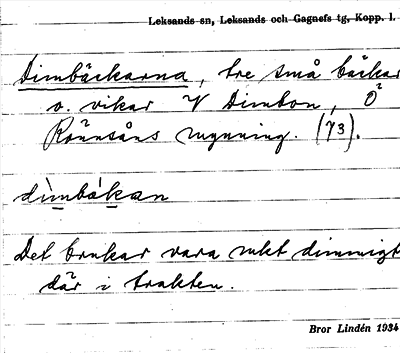 Leksands sn, Leksands och Gagnefs tg, Kopp. l.
Dimbäckarna, tre små bäckar
o. vikar V Dimbon, Ö
Rönnsåns mynning. (73).
dìmbàkan
Det brukar vara rukt dimmigt
där i trakten.
Bror Lindén 1934